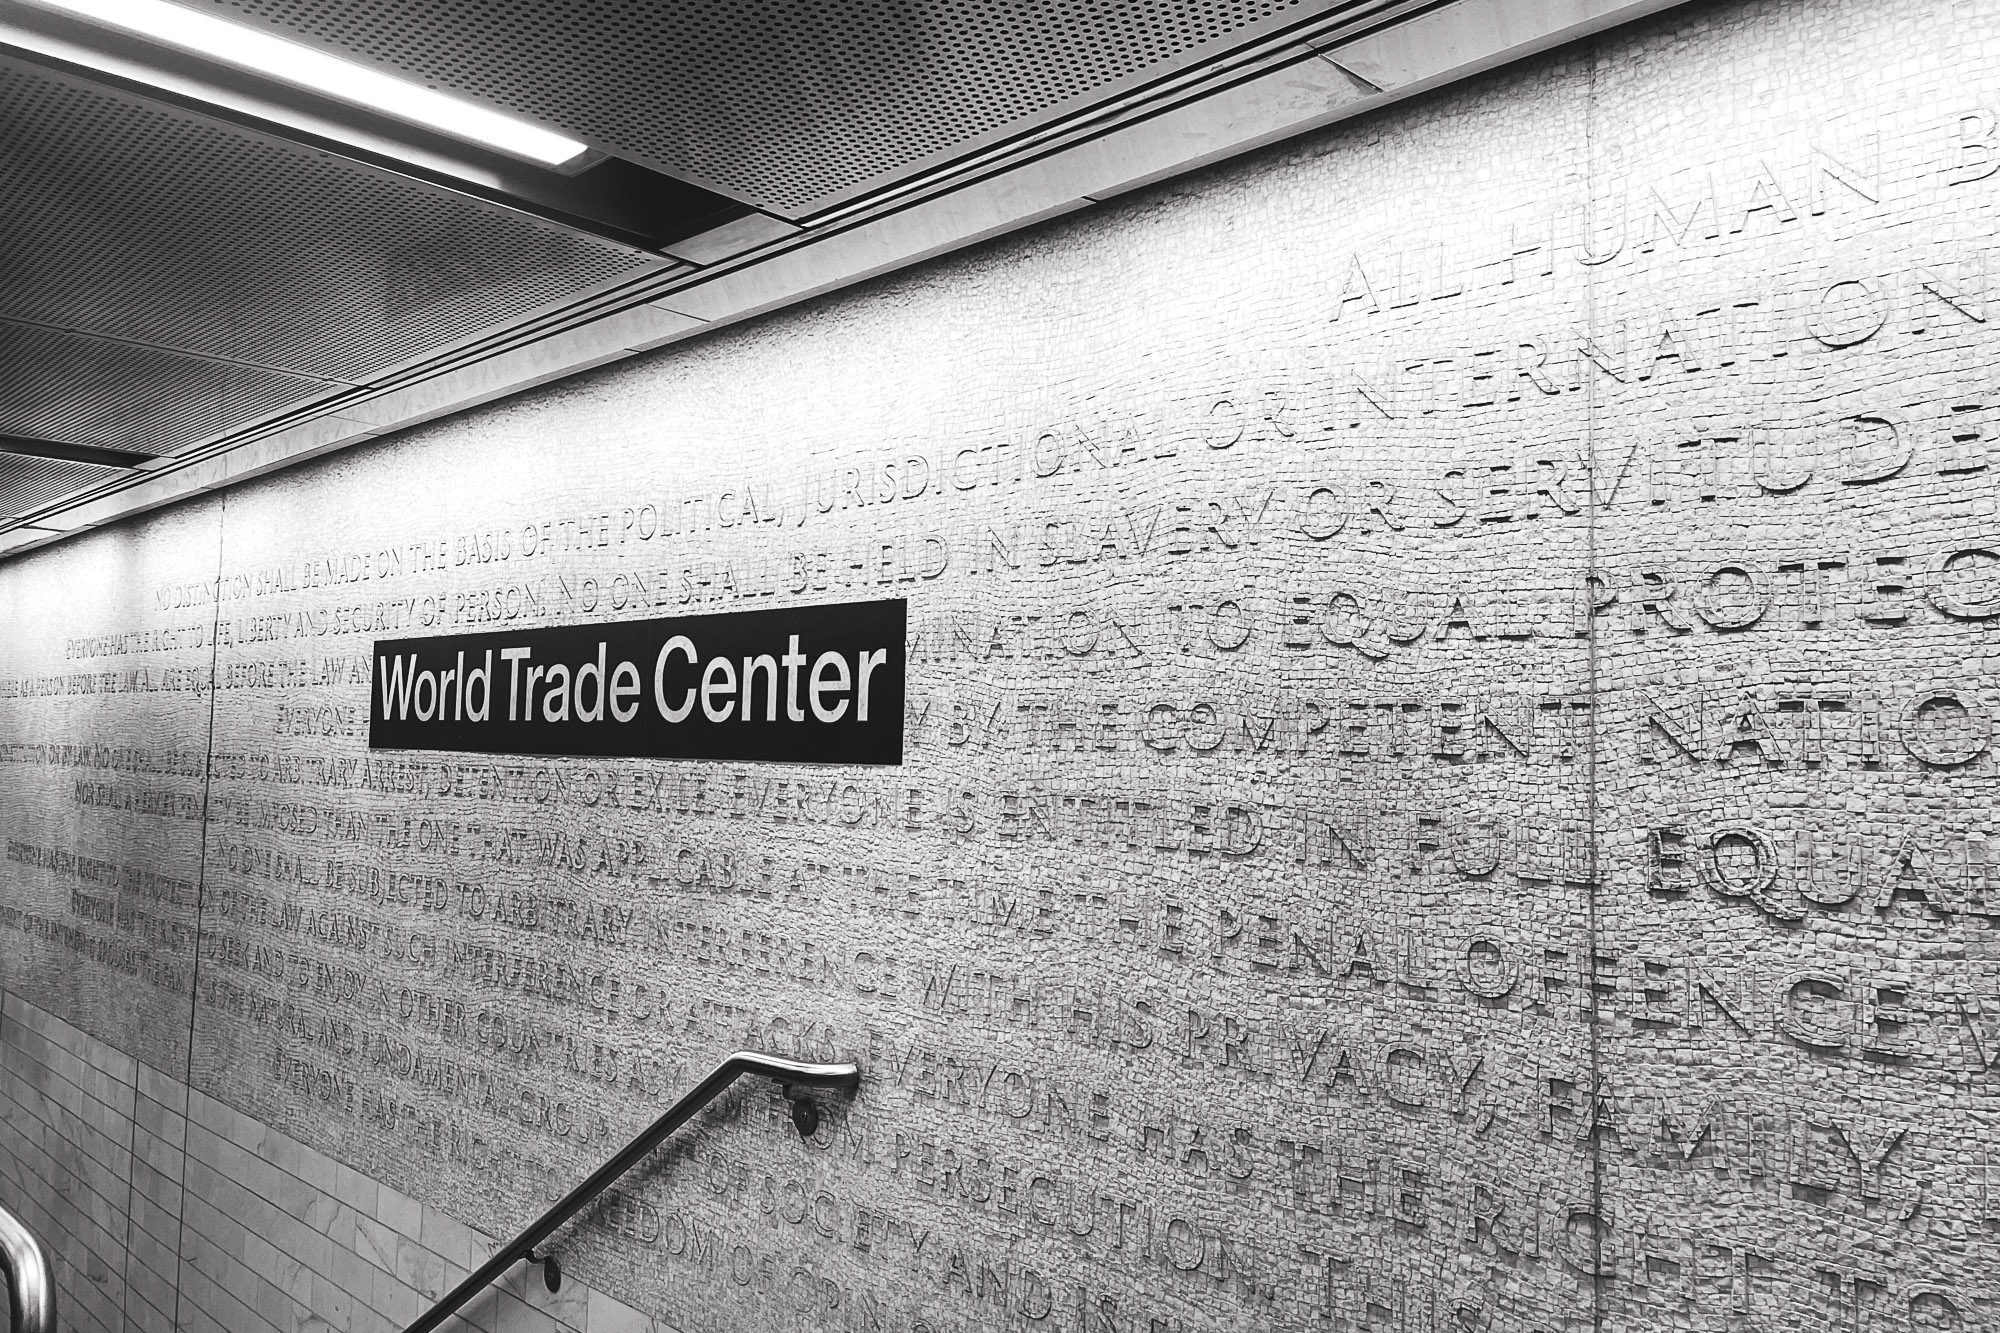 ALL HUMAN B
NO DISTINCTION SHALL BE MADE ON THE BASIS OF THE POLITICAL, JURISDICTIONAL OR INTERNATION
EVERYONE HAS THE RIGHT TO LIFE, LIBERTY AND SECURITY OF PERSON. NO ONE SHALL BE HELD IN SLAVERY OR SERVITUDE
AS A PERSON BEFORE THE LAW. ALL ARE EQUAL BEFORE THE LAW AN MINATION TO EQUAL PROTEC
World Trade Center
EVERYONE BY THE COMPETENT NATIO
LAW. NO ONE SHALL BE SUBJECTED TO ARBITRARY ARREST, DETENTION OR EXILE. EVERYONE IS ENTITLED IN FULL EQUAL
NOR SHALL A HEAVIER PENALTY BE IMPOSED THAN THE ONE THAT WAS APPLICABLE AT THE TIME THE PENAL OFFENCE W
NO ONE SHALL BE SUBJECTED TO ARBITRARY INTERFERENCE WITH HIS PRIVACY, FAMILY,
EVERYONE HAS THE RIGHT TO THE PROTECTION OF THE LAW AGAINST SUCH INTERFERENCE OR ATTACKS. EVERYONE HAS THE RIGHT TO
EVERYONE HAS THE RIGHT TO SEEK AND TO ENJOY IN OTHER COUNTRIES ASY M FROM PERSECUTION. THIS
THE FAMILY IS THE NATURAL AND FUNDAMENTAL GROUP OF SOCIETY AND IS
EVERYONE HAS THE RIGHT EEDOM OF OPIN